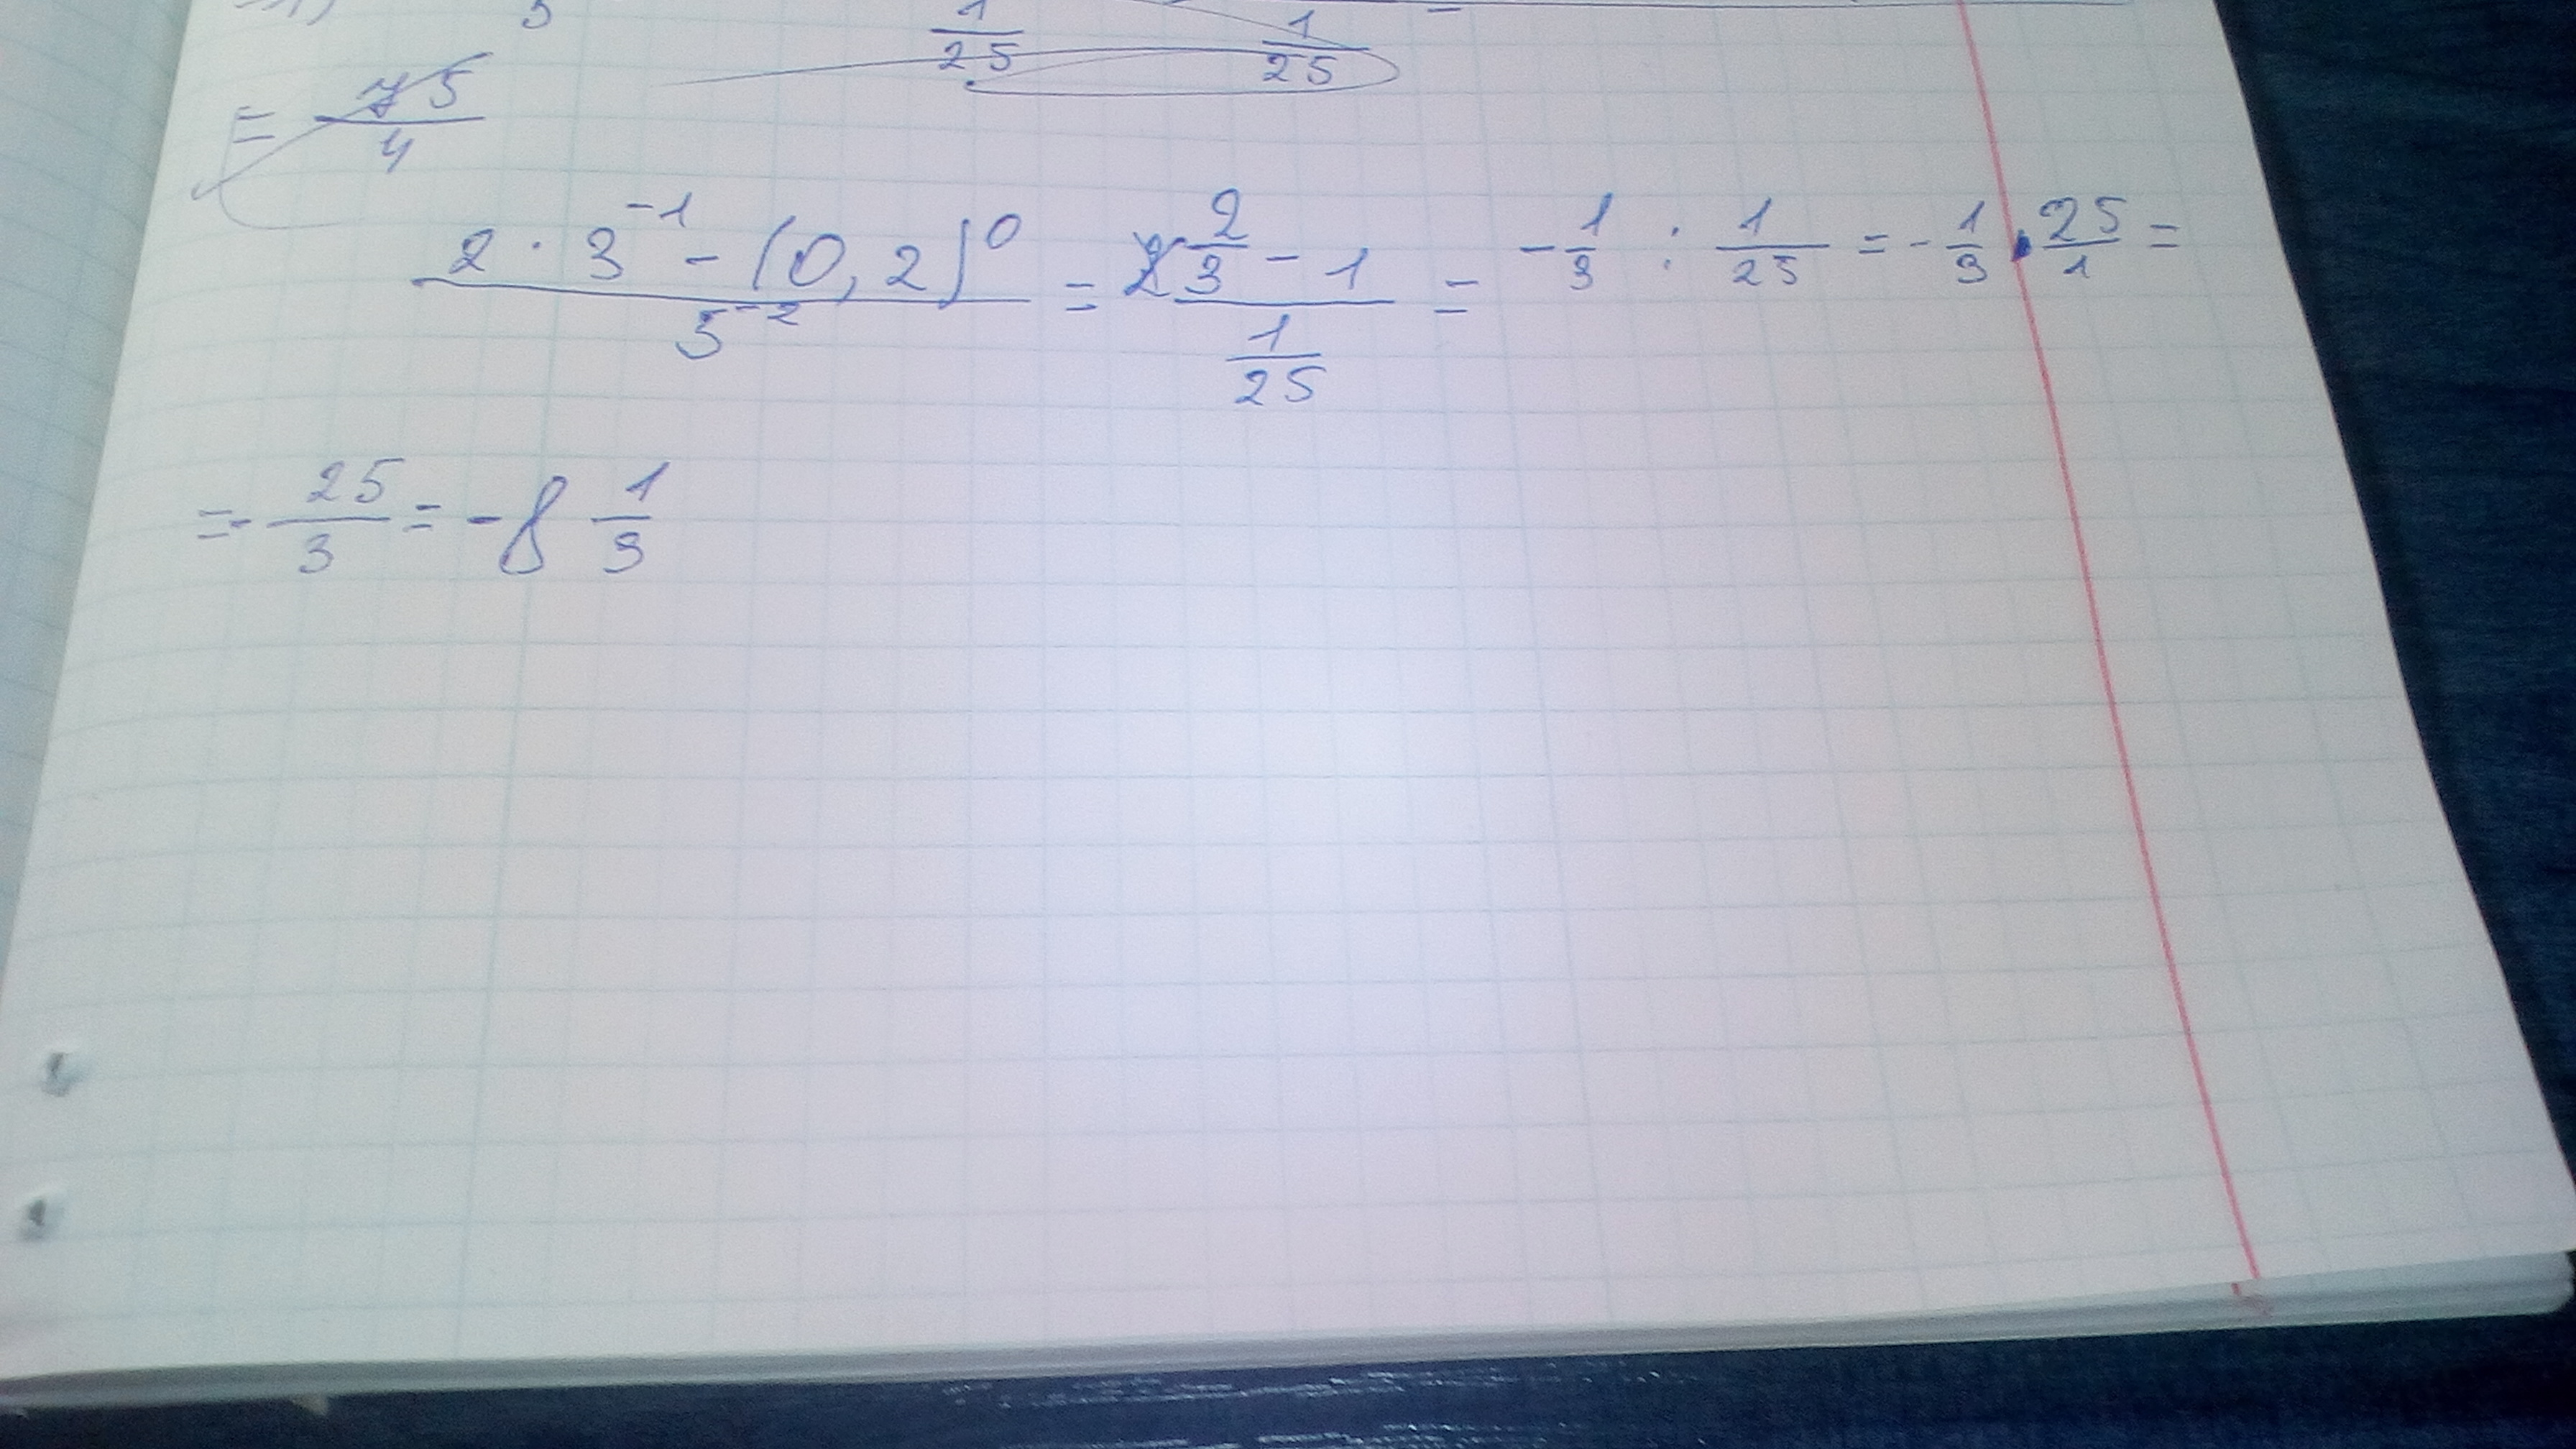 1/25 1/25
= 75/4
(2 · 3⁻¹ - (0,2)⁰)/5⁻² = (2/3 - 1)/(1/25) = - 1/3 : 1/25 = - 1/3 · 25/1 =
= - 25/3 = - 8 1/3